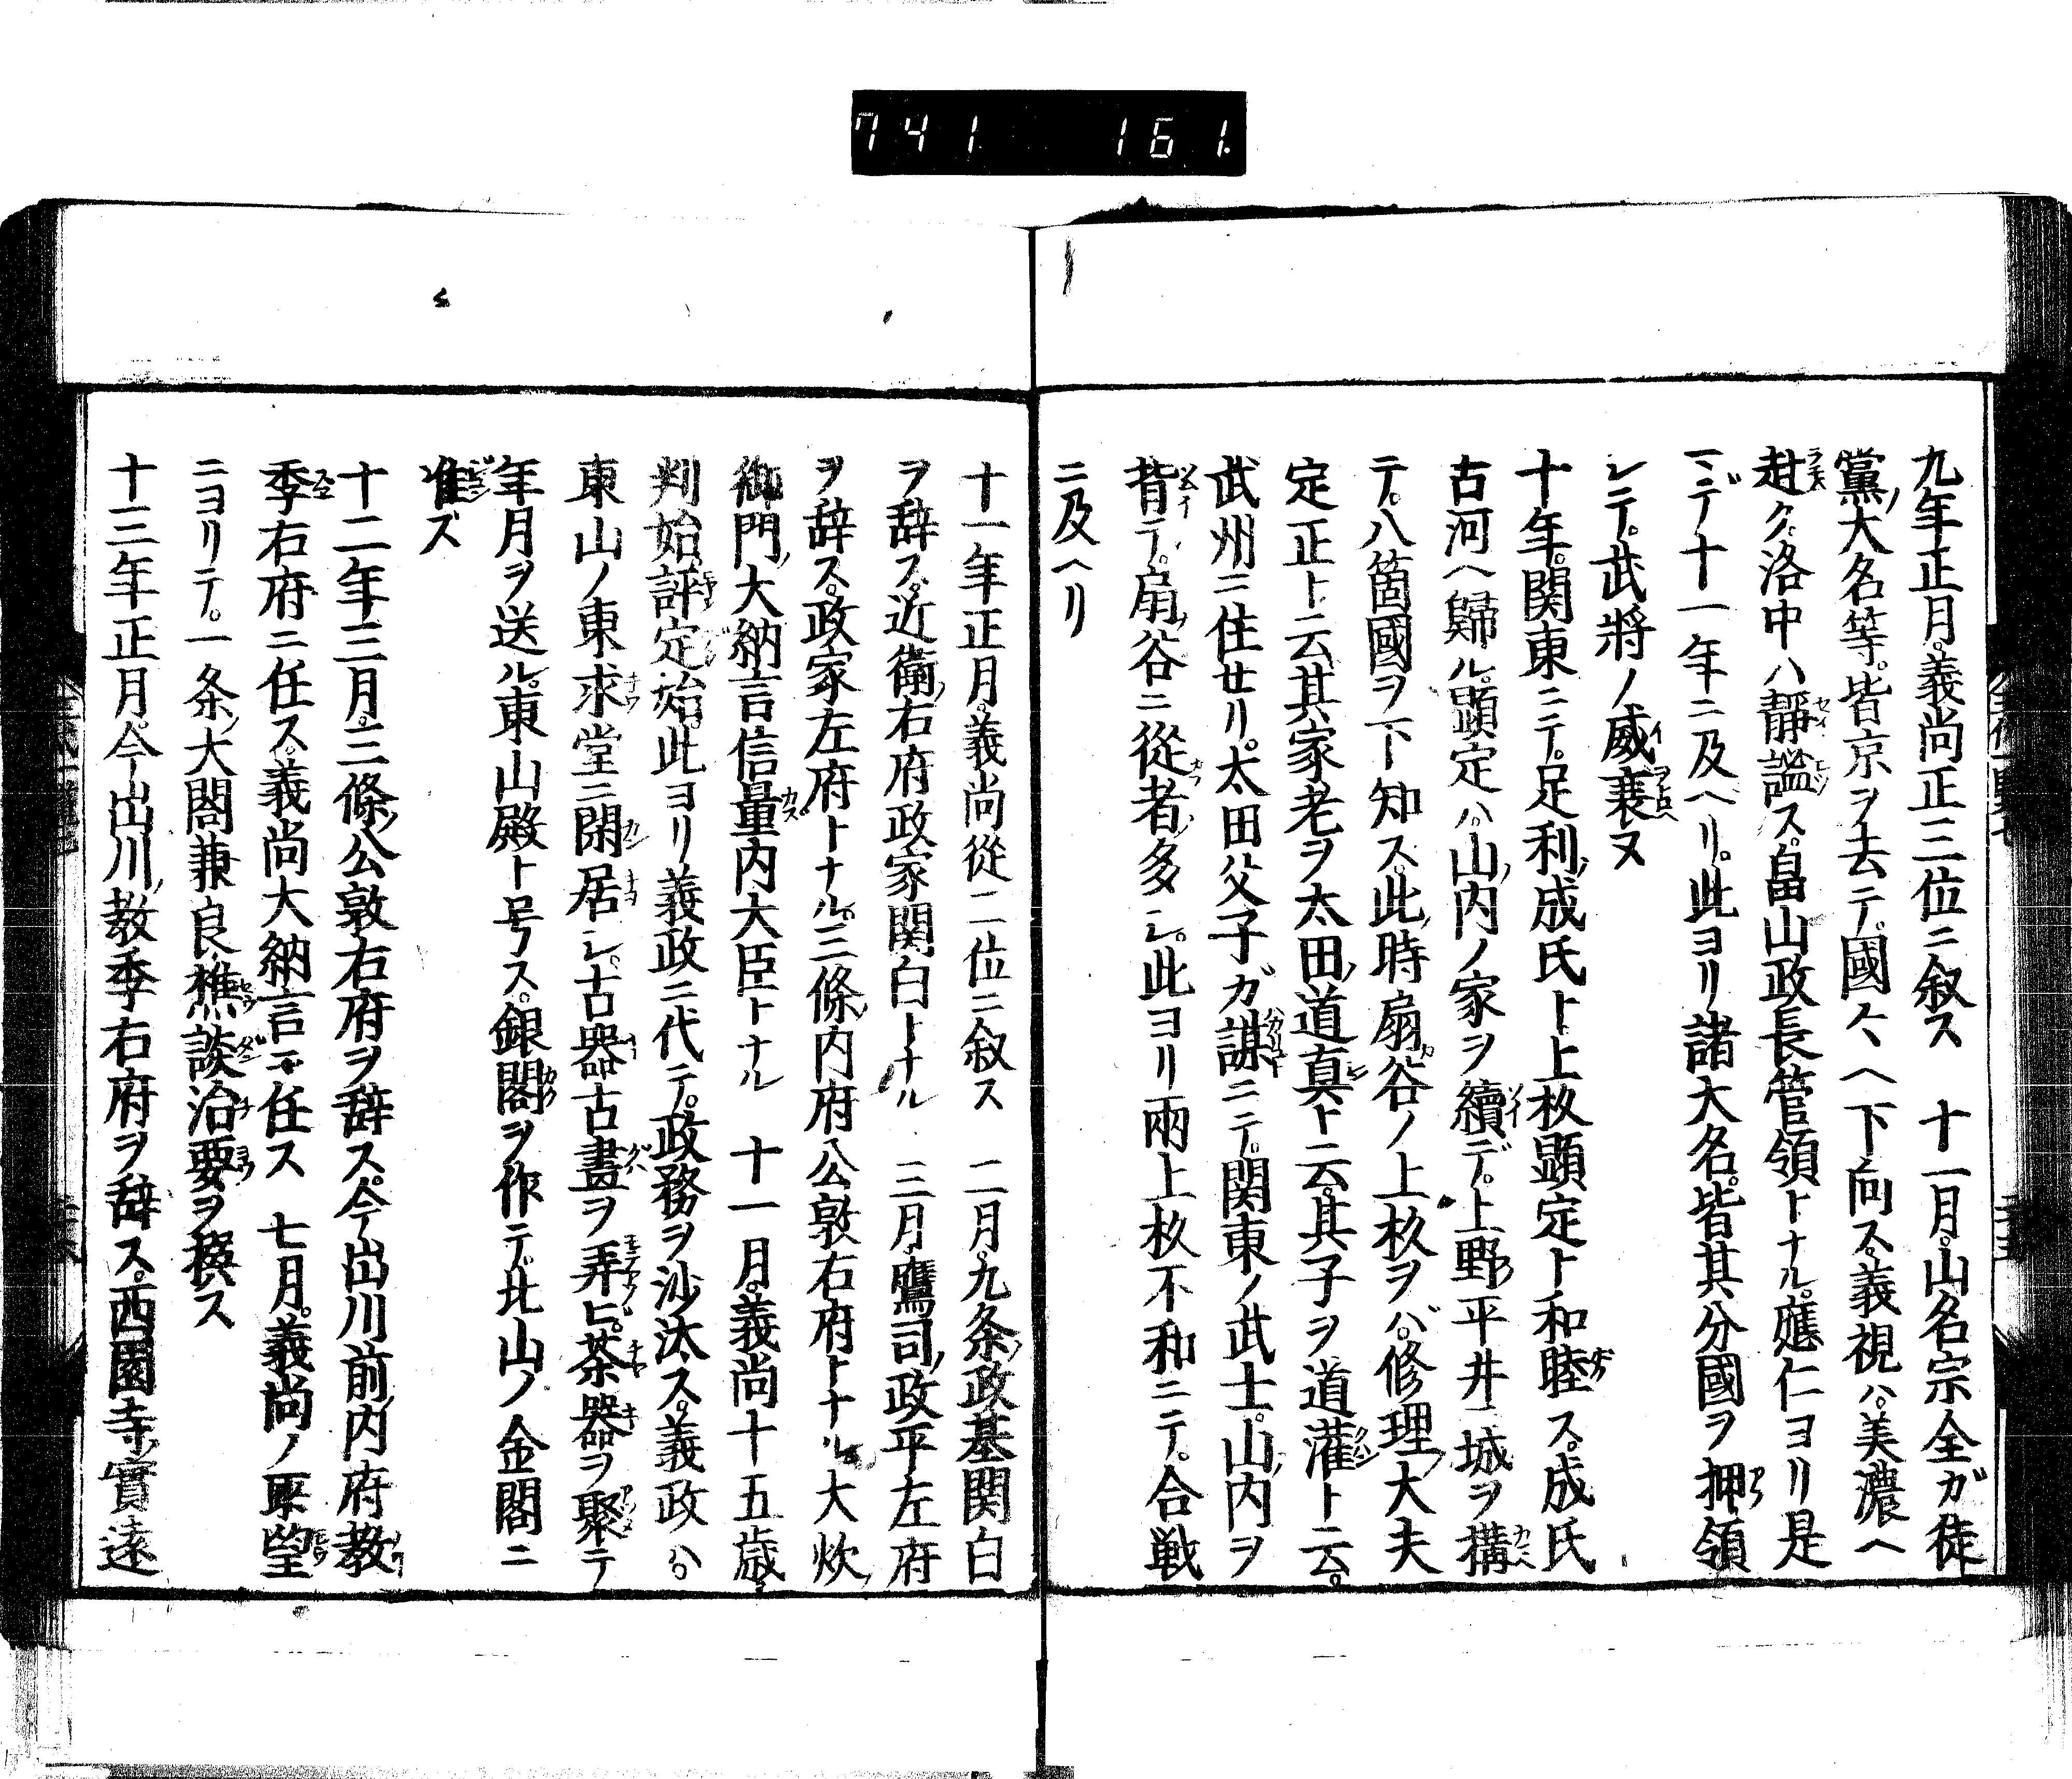 741 161.
九年正月。義尚正三位ニ叙ス 十一月。山名宗全ガ徒
黨大名等。皆京ヲ去テ。國々ヘ下向ス。義視ハ。美濃ヘ
赴ク。洛中ハ靜謐ス。畠山政長管領トナル。應仁ヨリ是
ニデ十一年ニ及ヘリ。此ヨリ諸大名。皆其分國ヲ押領
シテ。武將ノ威衰ヌ
十年。関東ニテ。足利成氏ト上杦顕定ト和睦ス。成氏
古河ヘ歸ル。顕定ハ。山内ノ家ヲ續デ。上野平井城ヲ構
テ。八箇國ヲ下知ス。此時扇谷ノ上杦ヲバ。修理大夫
定正ト云。其家老ヲ太田道真ト云。其子ヲ道灌ト云。
武州ニ住セリ。太田父子ガ謀ニテ。関東ノ武士。山内ヲ
背テ。扇谷ニ從者多シ。此ヨリ兩上杦不和ニテ。合戦
ニ及ヘリ
十一年正月。義尚從二位ニ叙ス 二月。九条政基関白
ヲ辞ス。近衞右府政家関白トナル 三月。鷹司政平左府
ヲ辞ス。政家左府トナル。三條内府公敦右府トナル。大炊
御門大納言信量内大臣トナル 十一月。義尚十五歳。
判始。評定始。此ヨリ義政ニ代テ。政務ヲ沙汰ス。義政ハ。
東山ノ東求堂ニ閑居シ。古器古畫ヲ弄ビ。茶器ヲ聚テ
年月ヲ送ル。東山殿ト号ス。銀閣ヲ作テ。北山ノ金閣ニ
准ズ
十二年三月。三條公敦右府ヲ辞ス。今出川前内府教
季右府ニ任ス。義尚大納言ニ任ス 七月。義尚ノ所望
ニヨリテ。一条大閤兼良樵談治要ヲ撰ス
十三年正月。今出川教季右府ヲ辞ス。西園寺實遠